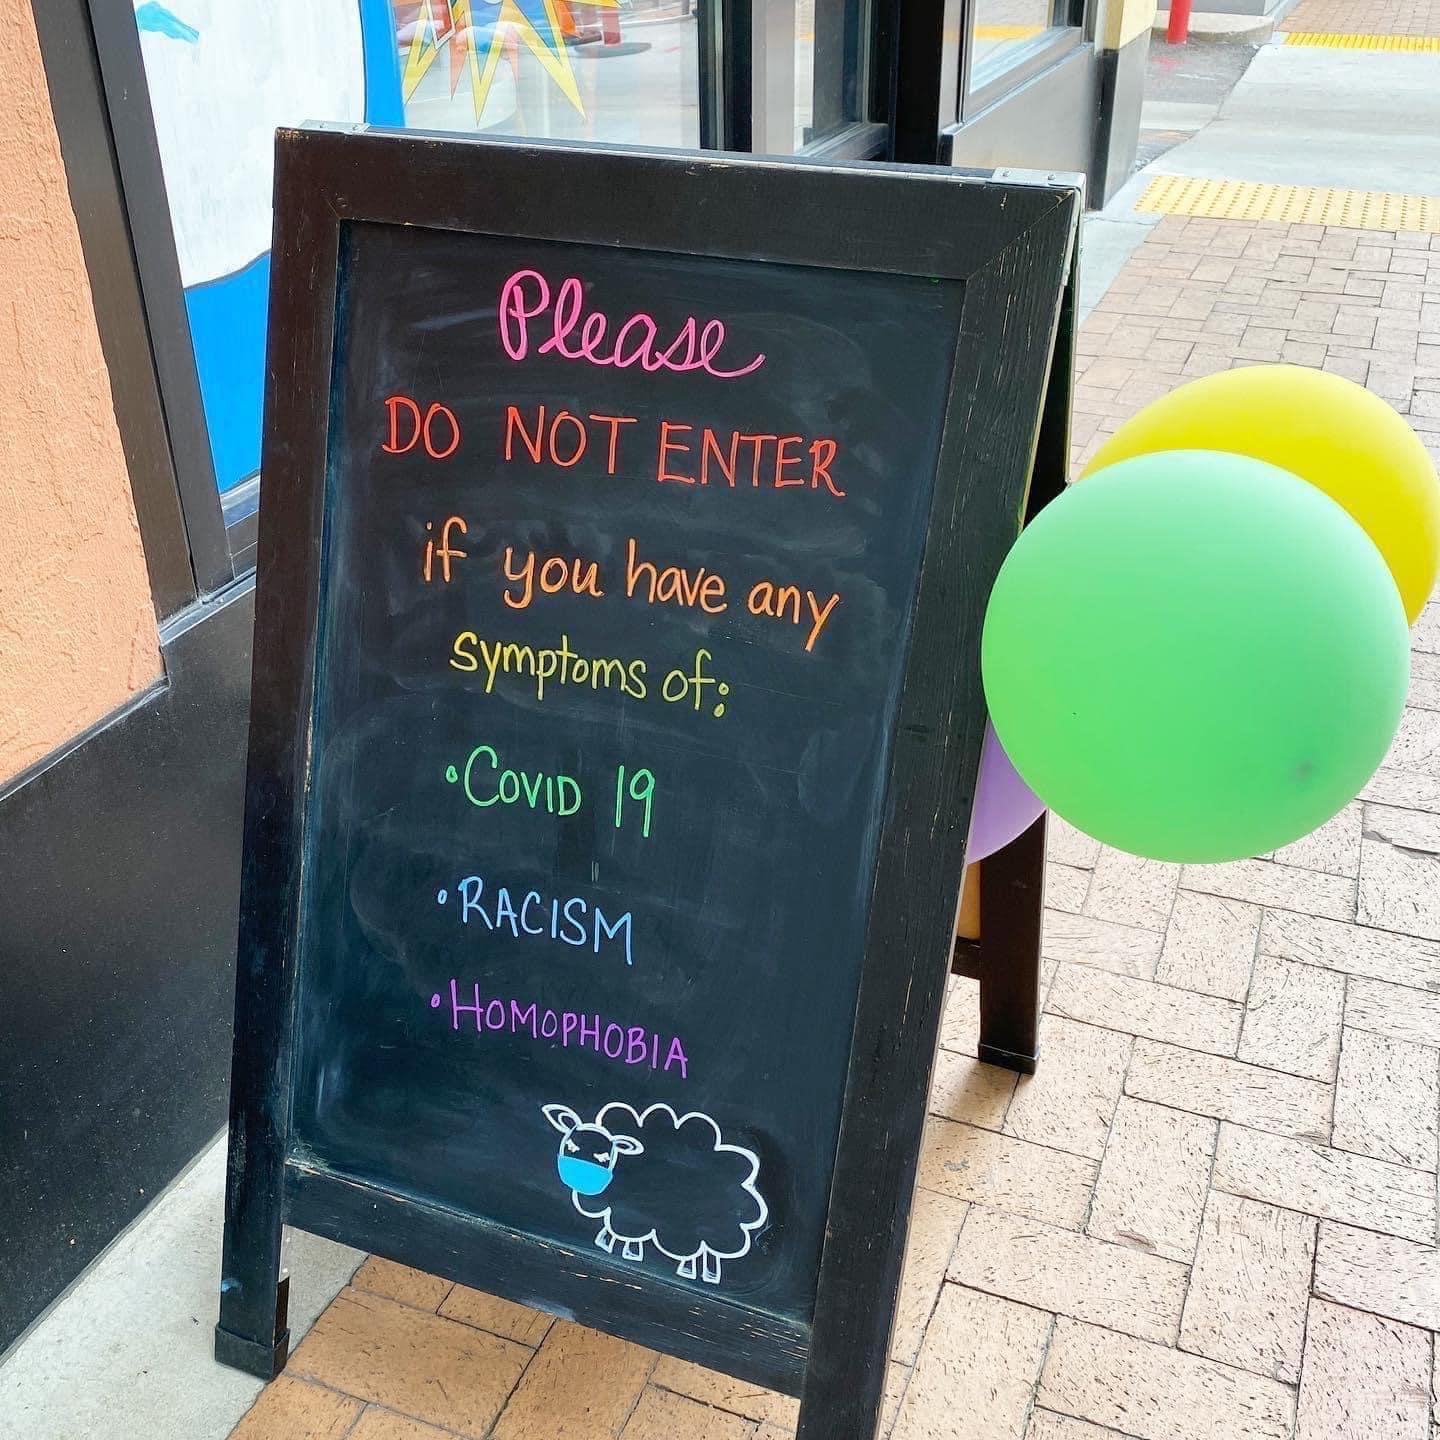 Please
DO NOT ENTER
if you have any
symptoms of:
• COVID 19
• RACISM
• HOMOPHOBIA